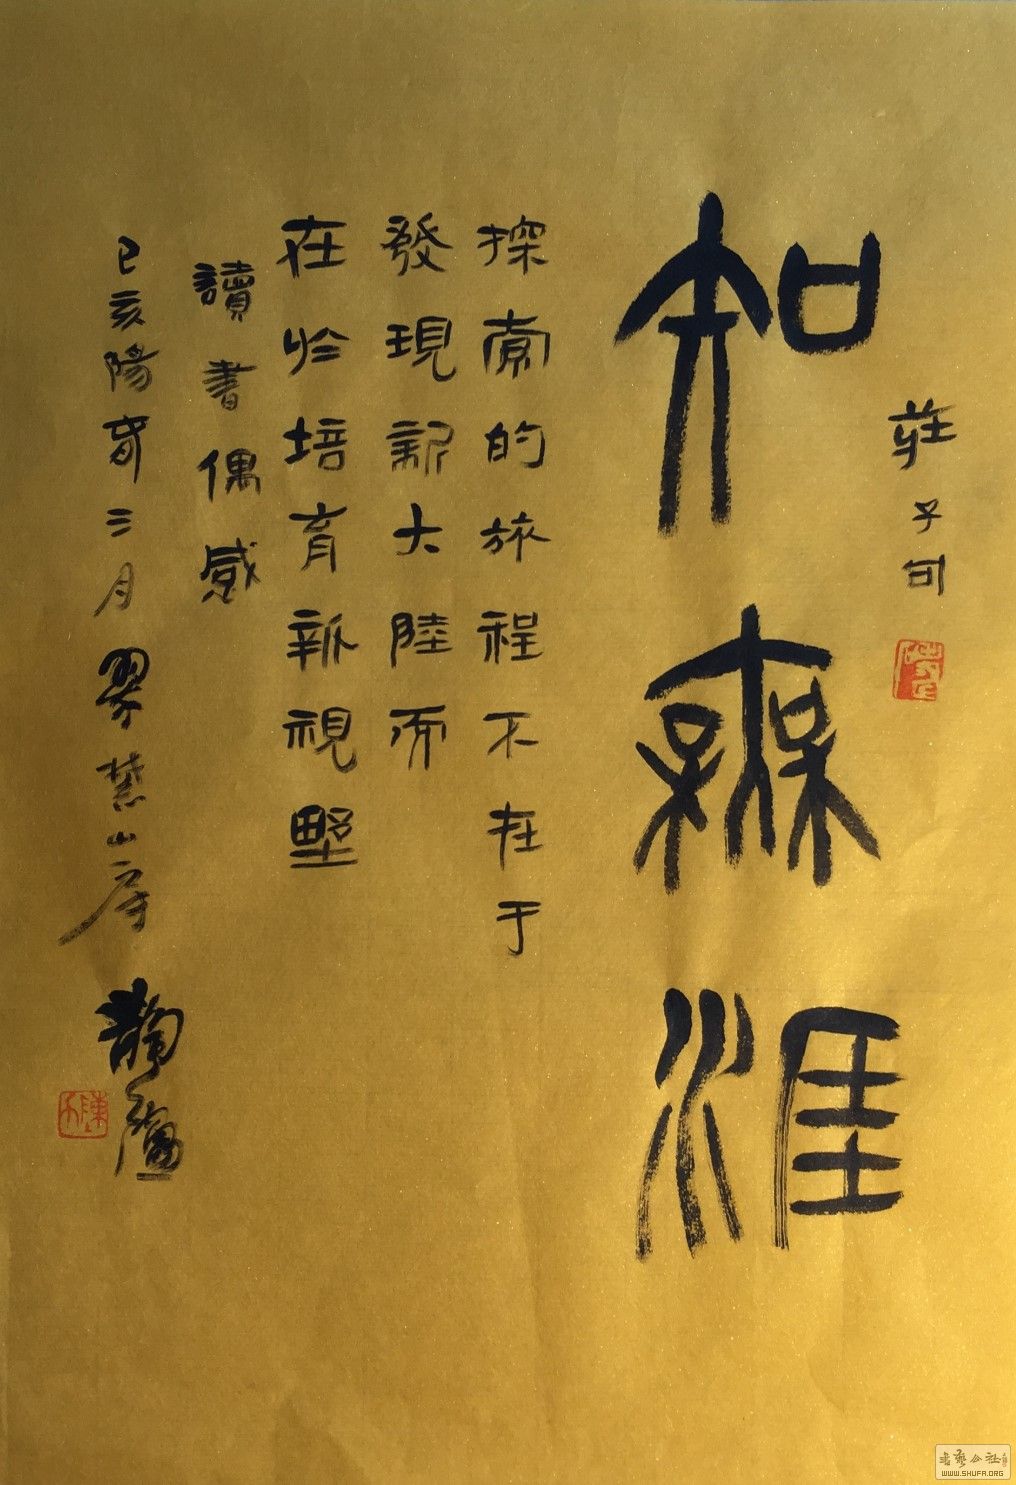 莊子句
知無涯
探索的旅程不在于
發現新大陸而
在於培育新視野
讀書偶感
己亥陽春三月翠慧山房靜廬
陳
書藝公社
WWW.SHUFA.ORG